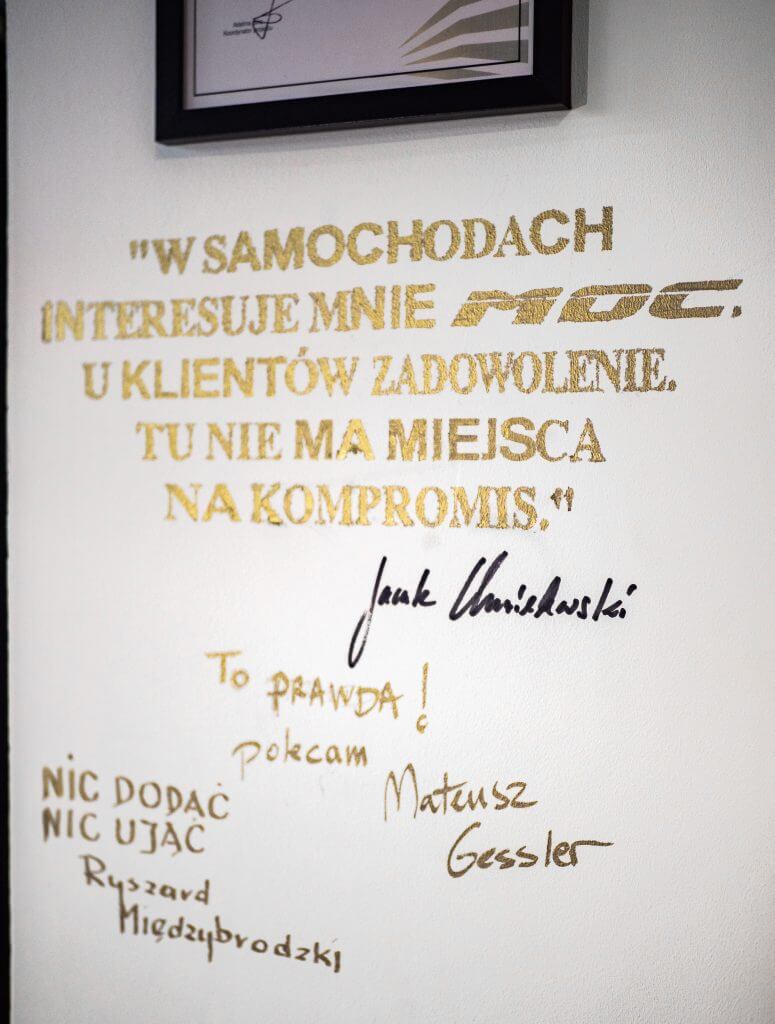 "W SAMOCHODACH
INTERESUJE MNIE MOC.
U KLIENTÓW ZADOWOLENIE.
TU NIE MA MIEJSCA
NA KOMPROMIS."
To PRAWDA!
polecam
Mateusz
Gessler
NIC DODAĆ
NIC UJĄĆ
Ryszard
Międzybrodzki